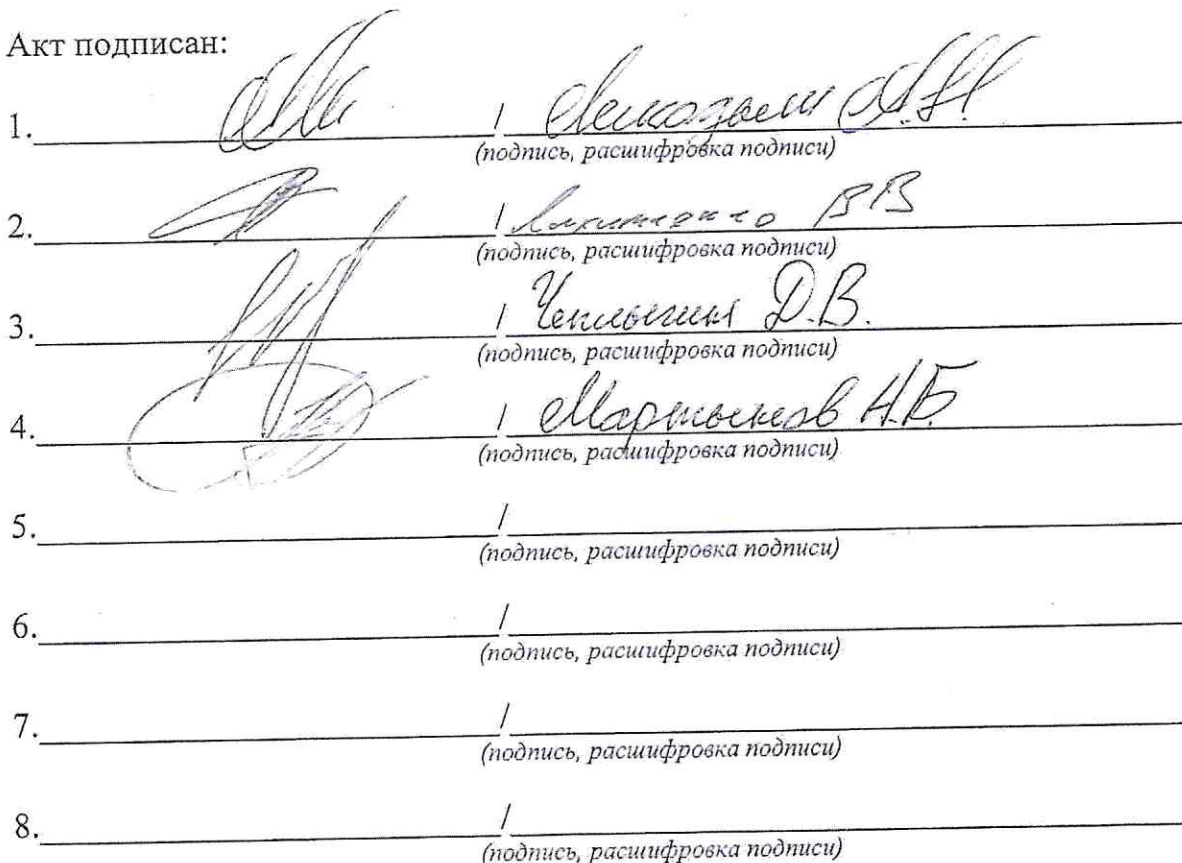 Акт подписан:
1. / А.Н.
(подпись, расшифровка подписи)
2. / В В
(подпись, расшифровка подписи)
3. / Чеклыгин Д.В.
(подпись, расшифровка подписи)
4. / Мартынов Н.Б.
(подпись, расшифровка подписи)
5. /
(подпись, расшифровка подписи)
6. /
(подпись, расшифровка подписи)
7. /
(подпись, расшифровка подписи)
8. /
(подпись, расшифровка подписи)